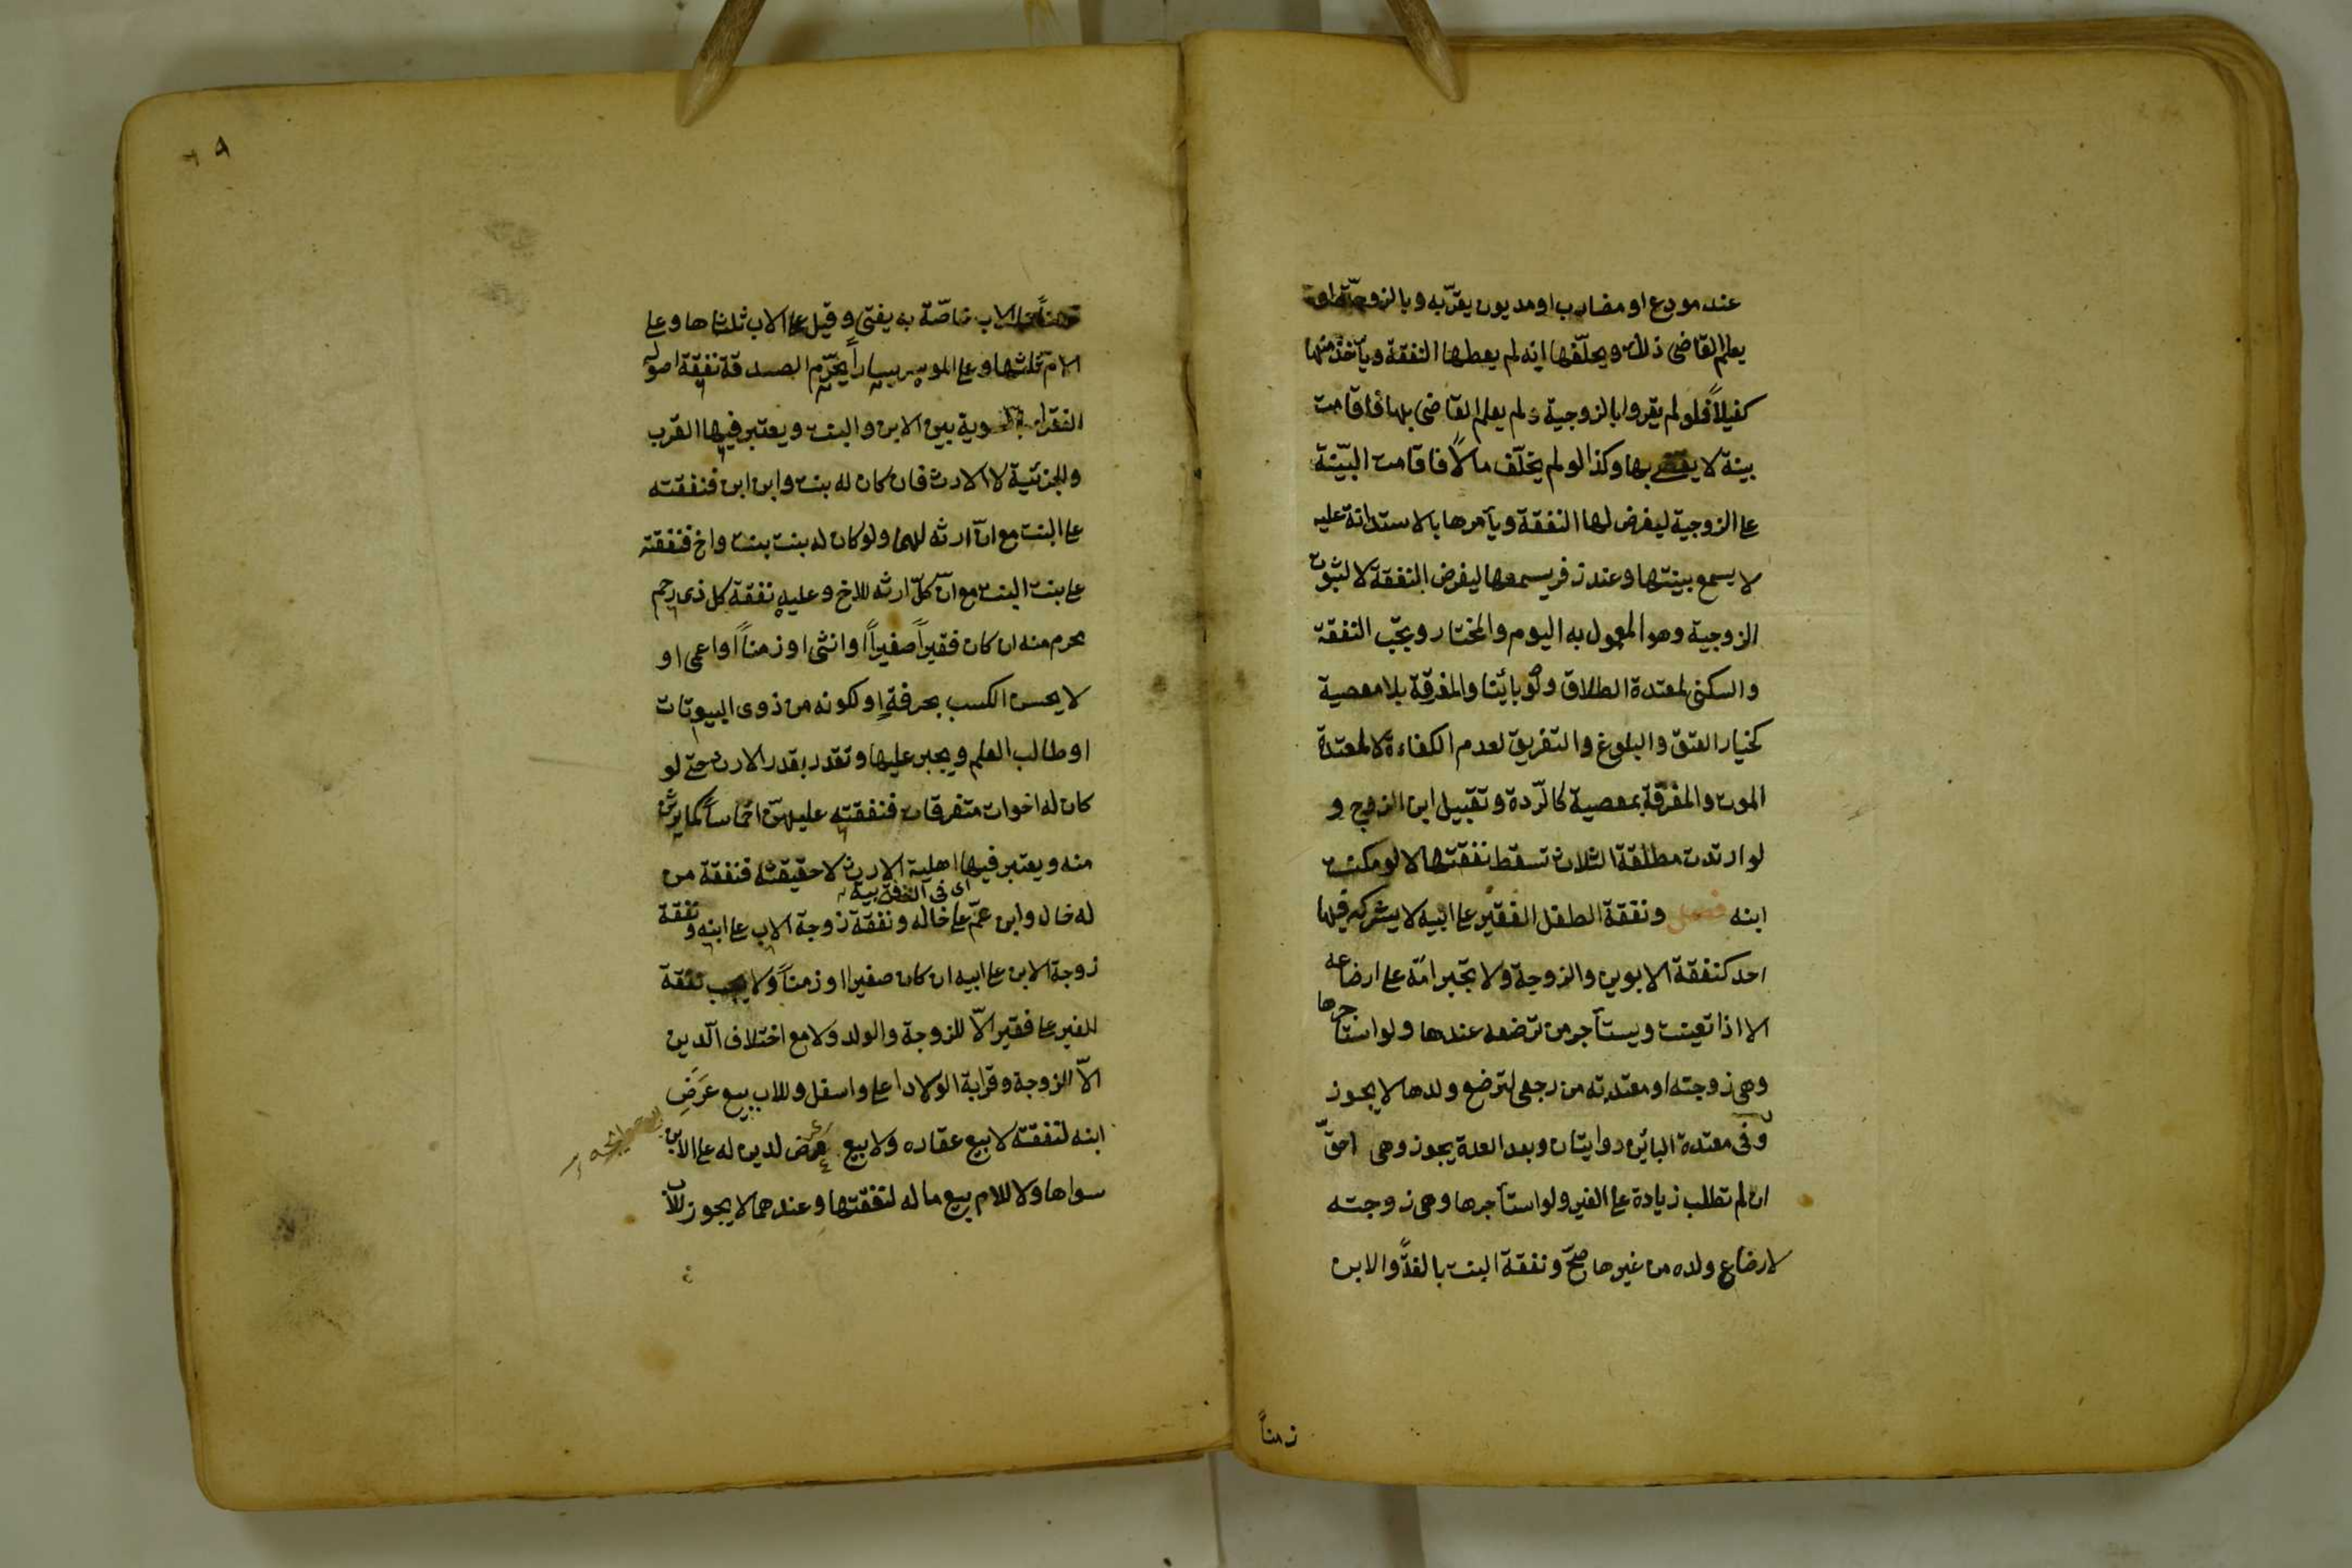 عند مودع او مضارب او مديون يقرّ به وبالزوجيّة او
يعلم القاضى ذلك ويحلّفها انه لم يعطها النفقة ويأخذ منها
كفيلاً فلو لم يقروا بالزوجية ولم يعلم القاضى بها فاقامت
بينة لا يقضى بها وكذا لو لم يخلّف مالاً فاقامت البيّنة
على الزوجية ليفرض لها النفقة ويأمرها بالاستدانة عليه
لا يسمع بينتها وعند زفر يسمعها ليفرض النفقة لا لثبوت
الزوجية وهو المعمول به اليوم والمختار ويجب النفقة
والسكنى لمعتدة الطلاق ولو بائنا والمفرقة بلا معصية
كخيار العتق والبلوغ والتفريق لعدم الكفاءة لا لمعتدة
الموت والمفرّقة بمعصية كالرّدة وتقبيل ابن الزوج و
لو ارتدت مطلقة الثلاث تسقط نفقتها لا لو مكنت
ابنه فصل ونفقة الطفل الفقير على ابيه لا يشركه فيها
احد كنفقة الابوين والزوجة ولا تجبر امّه على ارضاعه
الا اذا تعينت ويستأجر من ترضعه عندها ولو استأجرها
وهى زوجته او معتدته من رجعى لترضع ولدها لا يجوز
وفى معتدة البائن روايتان وبعد العدة يجوز وهى احقّ
ان لم تطلب زيادة على الغير ولو استأجرها وهى زوجته
لارضاع ولده من غيرها صحّ ونفقة البنت بالغةً والابن
زمناً
٦٩
زمناً على الاب خاصّة به يفتى وقيل على الاب ثلثاها وعلى
الامّ ثلثها وعلى الموسر يساراً يحرّم الصدقة نفقة اصوله
الفقراء بالسوية بين الابن والبنت ويعتبر فيها القرب
والجزئية لا الارث فان كان له بنت وابن ابن فنفقته
على البنت مع انّ ارثه لهما ولو كان له بنت بنت واخ فنفقته
على بنت البنت مع انّ كلّ ارثه للاخ وعليه نفقة كل ذى رحم
محرم منه ان كان فقيراً صغيراً او انثى او زمناً او اعمى او
لا يحسن الكسب بحرفةٍ او لكونه من ذوى البيوتات
او طالب العلم ويجبر عليها وتقدر بقدر الارث حتى لو
كان له اخوات متفرقات فنفقته عليهنّ اخماساً كما يرثن
منه ويعتبر فيها اهلية الارث لا حقيقته فنفقة من
له خال وابن عمّ على خاله ونفقة زوجة الاب على ابنه ونفقة
زوجة الابن على ابيه ان كان صغيرا او زمناً ولا يجب نفقة
للغير على فقير الّا للزوجة والولد ولا مع اختلاف الدّين
الّا للزوجة وقرابة الولاد اعلى واسفل وللاب بيع عَرَضِ
ابنه لنفقته لا بيع عقاره ولا بيع عرض لدين له على الابن
سواها ولا للام بيع ماله لنفقتها وعندهما لا يجوز للاب